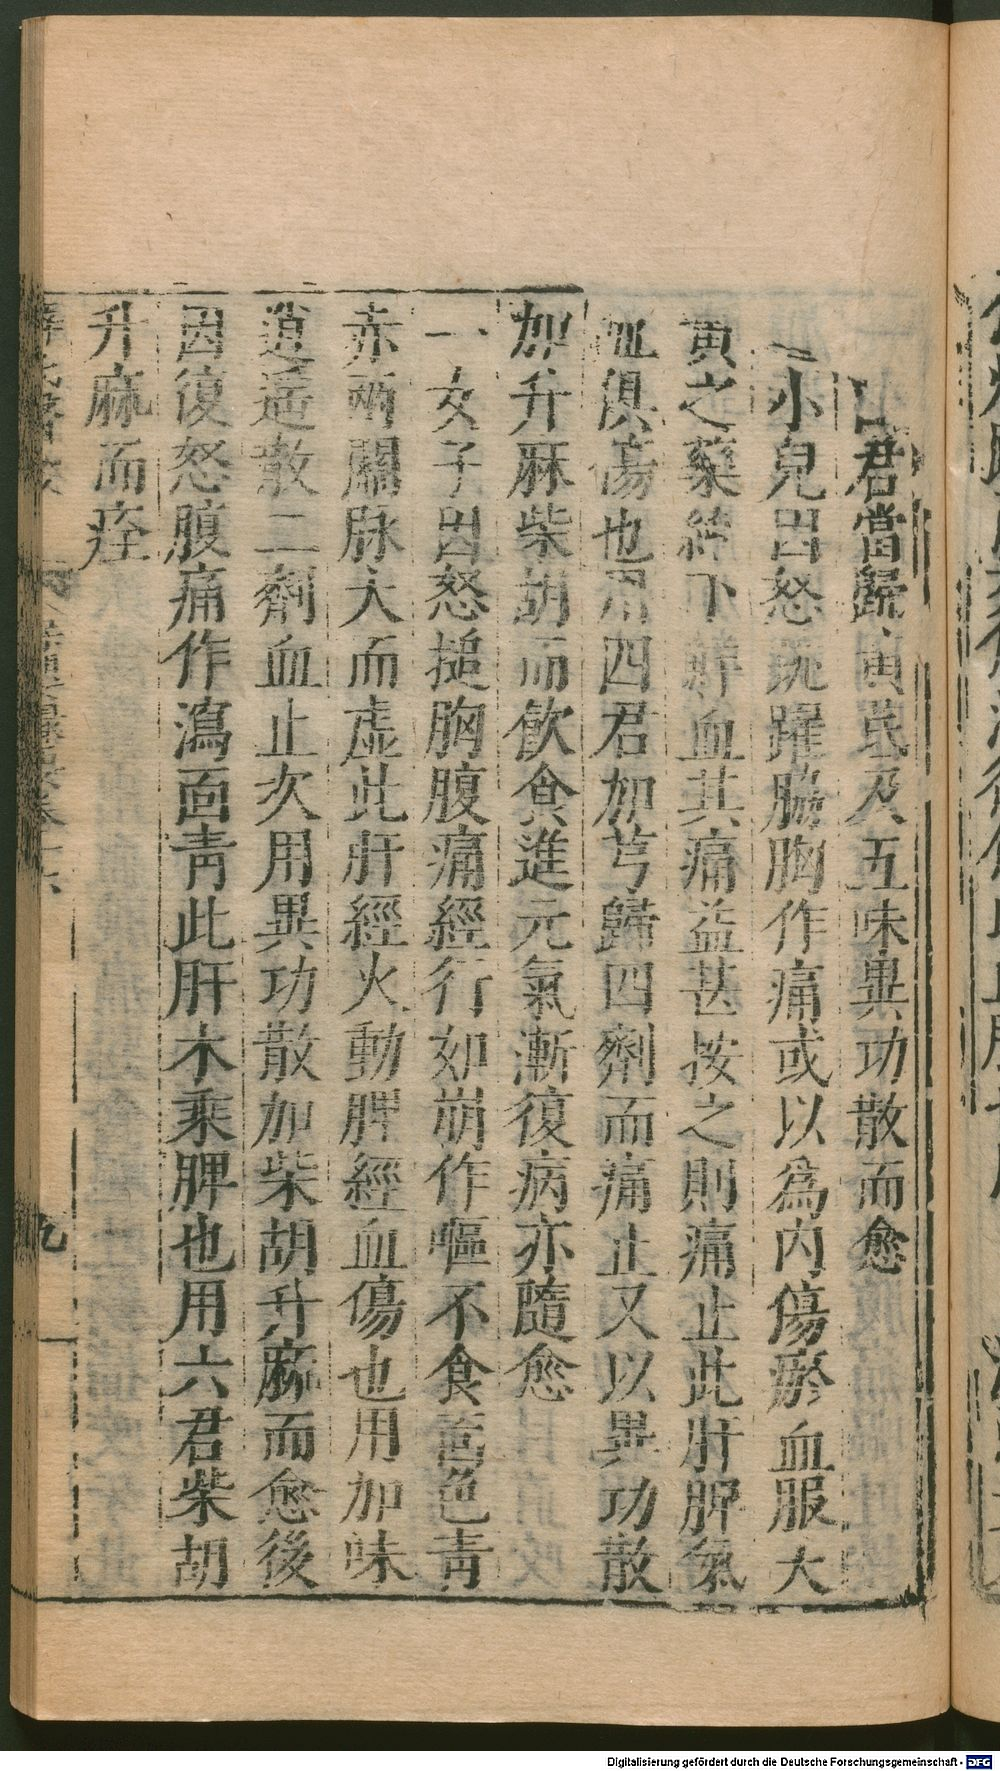 君當歸黄芪及五味異功散而愈
一小兒因怒跳躍脇胸作痛或以爲内傷瘀血服大
黄之藥 下鮮血其痛益甚按之則痛止此肝脾氣
血俱傷也用四君加芎歸四劑而痛止又以異功散
加升麻柴胡而飲食進元氣漸復病亦隨愈
一女子因怒搥胸腹痛經行如崩作嘔不食面色青
赤兩關脉大而虛此肝經火動脾經血傷也用加味
逍遥散二劑血止次用異功散加柴胡升麻而愈後
因復怒腹痛作瀉面青此肝木乘脾也用六君柴胡
升麻而痊
九
Digitalisierung gefördert durch die Deutsche Forschungsgemeinschaft - DFG